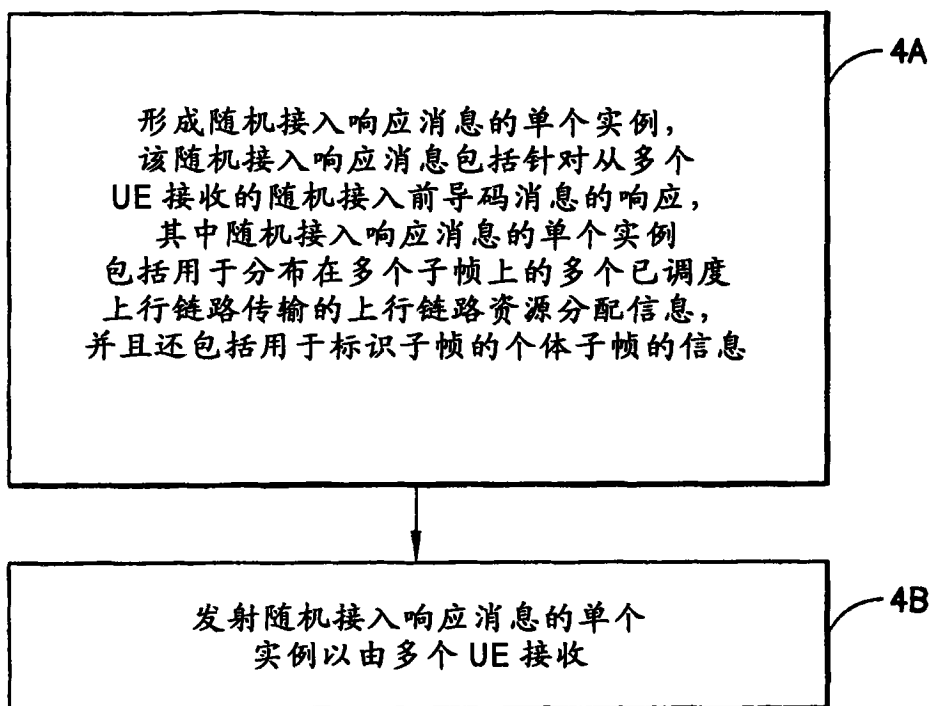 4A
形成随机接入响应消息的单个实例，
该随机接入响应消息包括针对从多个
UE 接收的随机接入前导码消息的响应，
其中随机接入响应消息的单个实例
包括用于分布在多个子帧上的多个已调度
上行链路传输的上行链路资源分配信息，
并且还包括用于标识子帧的个体子帧的信息
4B
发射随机接入响应消息的单个
实例以由多个 UE 接收